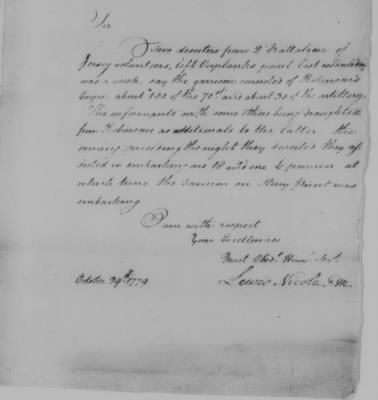 Sir
Two deserters from 2d Battalion of
Jersey volunteers, left Verplanks point last wednesday
was a week, say the garrison consisted of Robinson's
Corps, about 100 of the 71st and about 30 of the artillery.
The informants with some others being draughted
from Robinsons as additionals to the latter the
evening preceeding the night they deserted they as
sisted in embarking one 18 and one 6 pounder at
which time the Cannon on Stony Point was
embarking
I am with respect
Your Excellencies
Most Obedt. Hum. Sert.
October 29th. 1779
Lewis Nicola